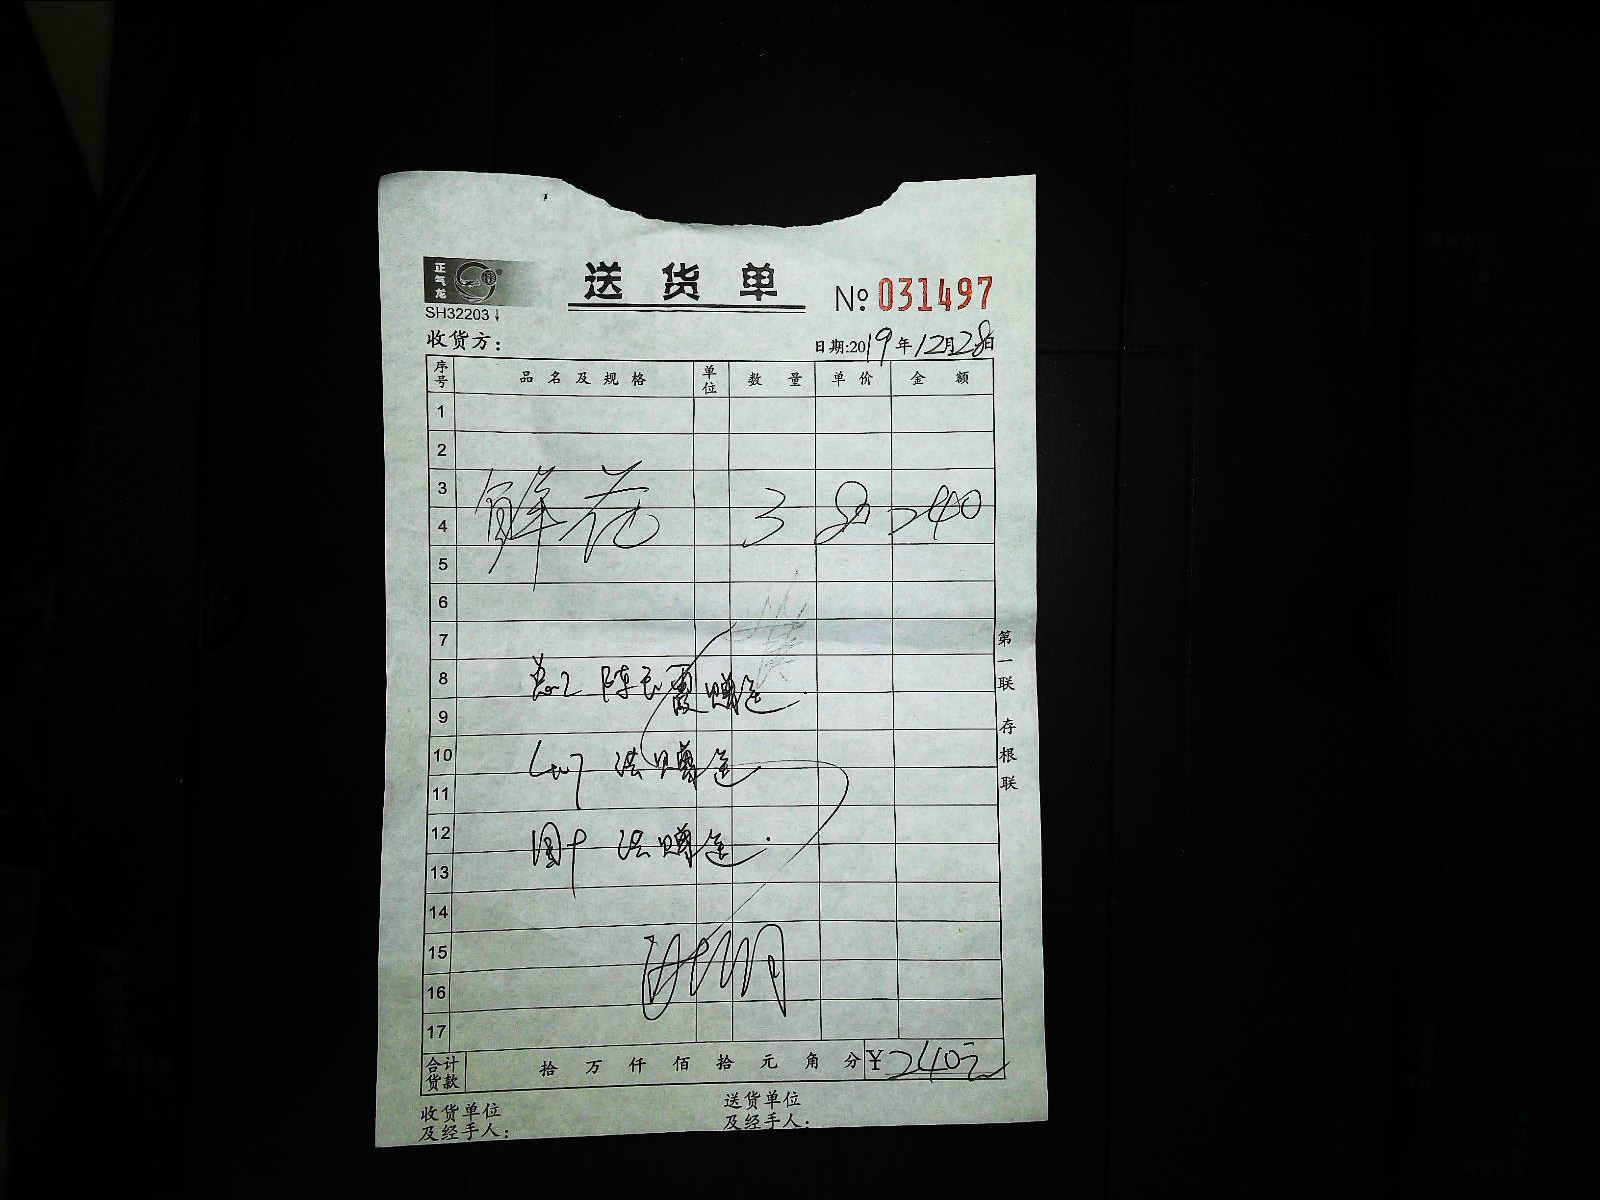 正气龙
送货单
№ 031497
SH32203↓
收货方：
日期:2019年12月28日
序号 品名及规格 单位 数量 单价 金额
1
2
3
鲜花 3 80 240
4
5
6
7
8
赠送
9
10
赠送
11
12
赠送
13
14
15
16
17
合计货款 拾 万 仟 佰 拾 元 角 分 ¥240元
收货单位及经手人：
送货单位及经手人：
第一联 存根联